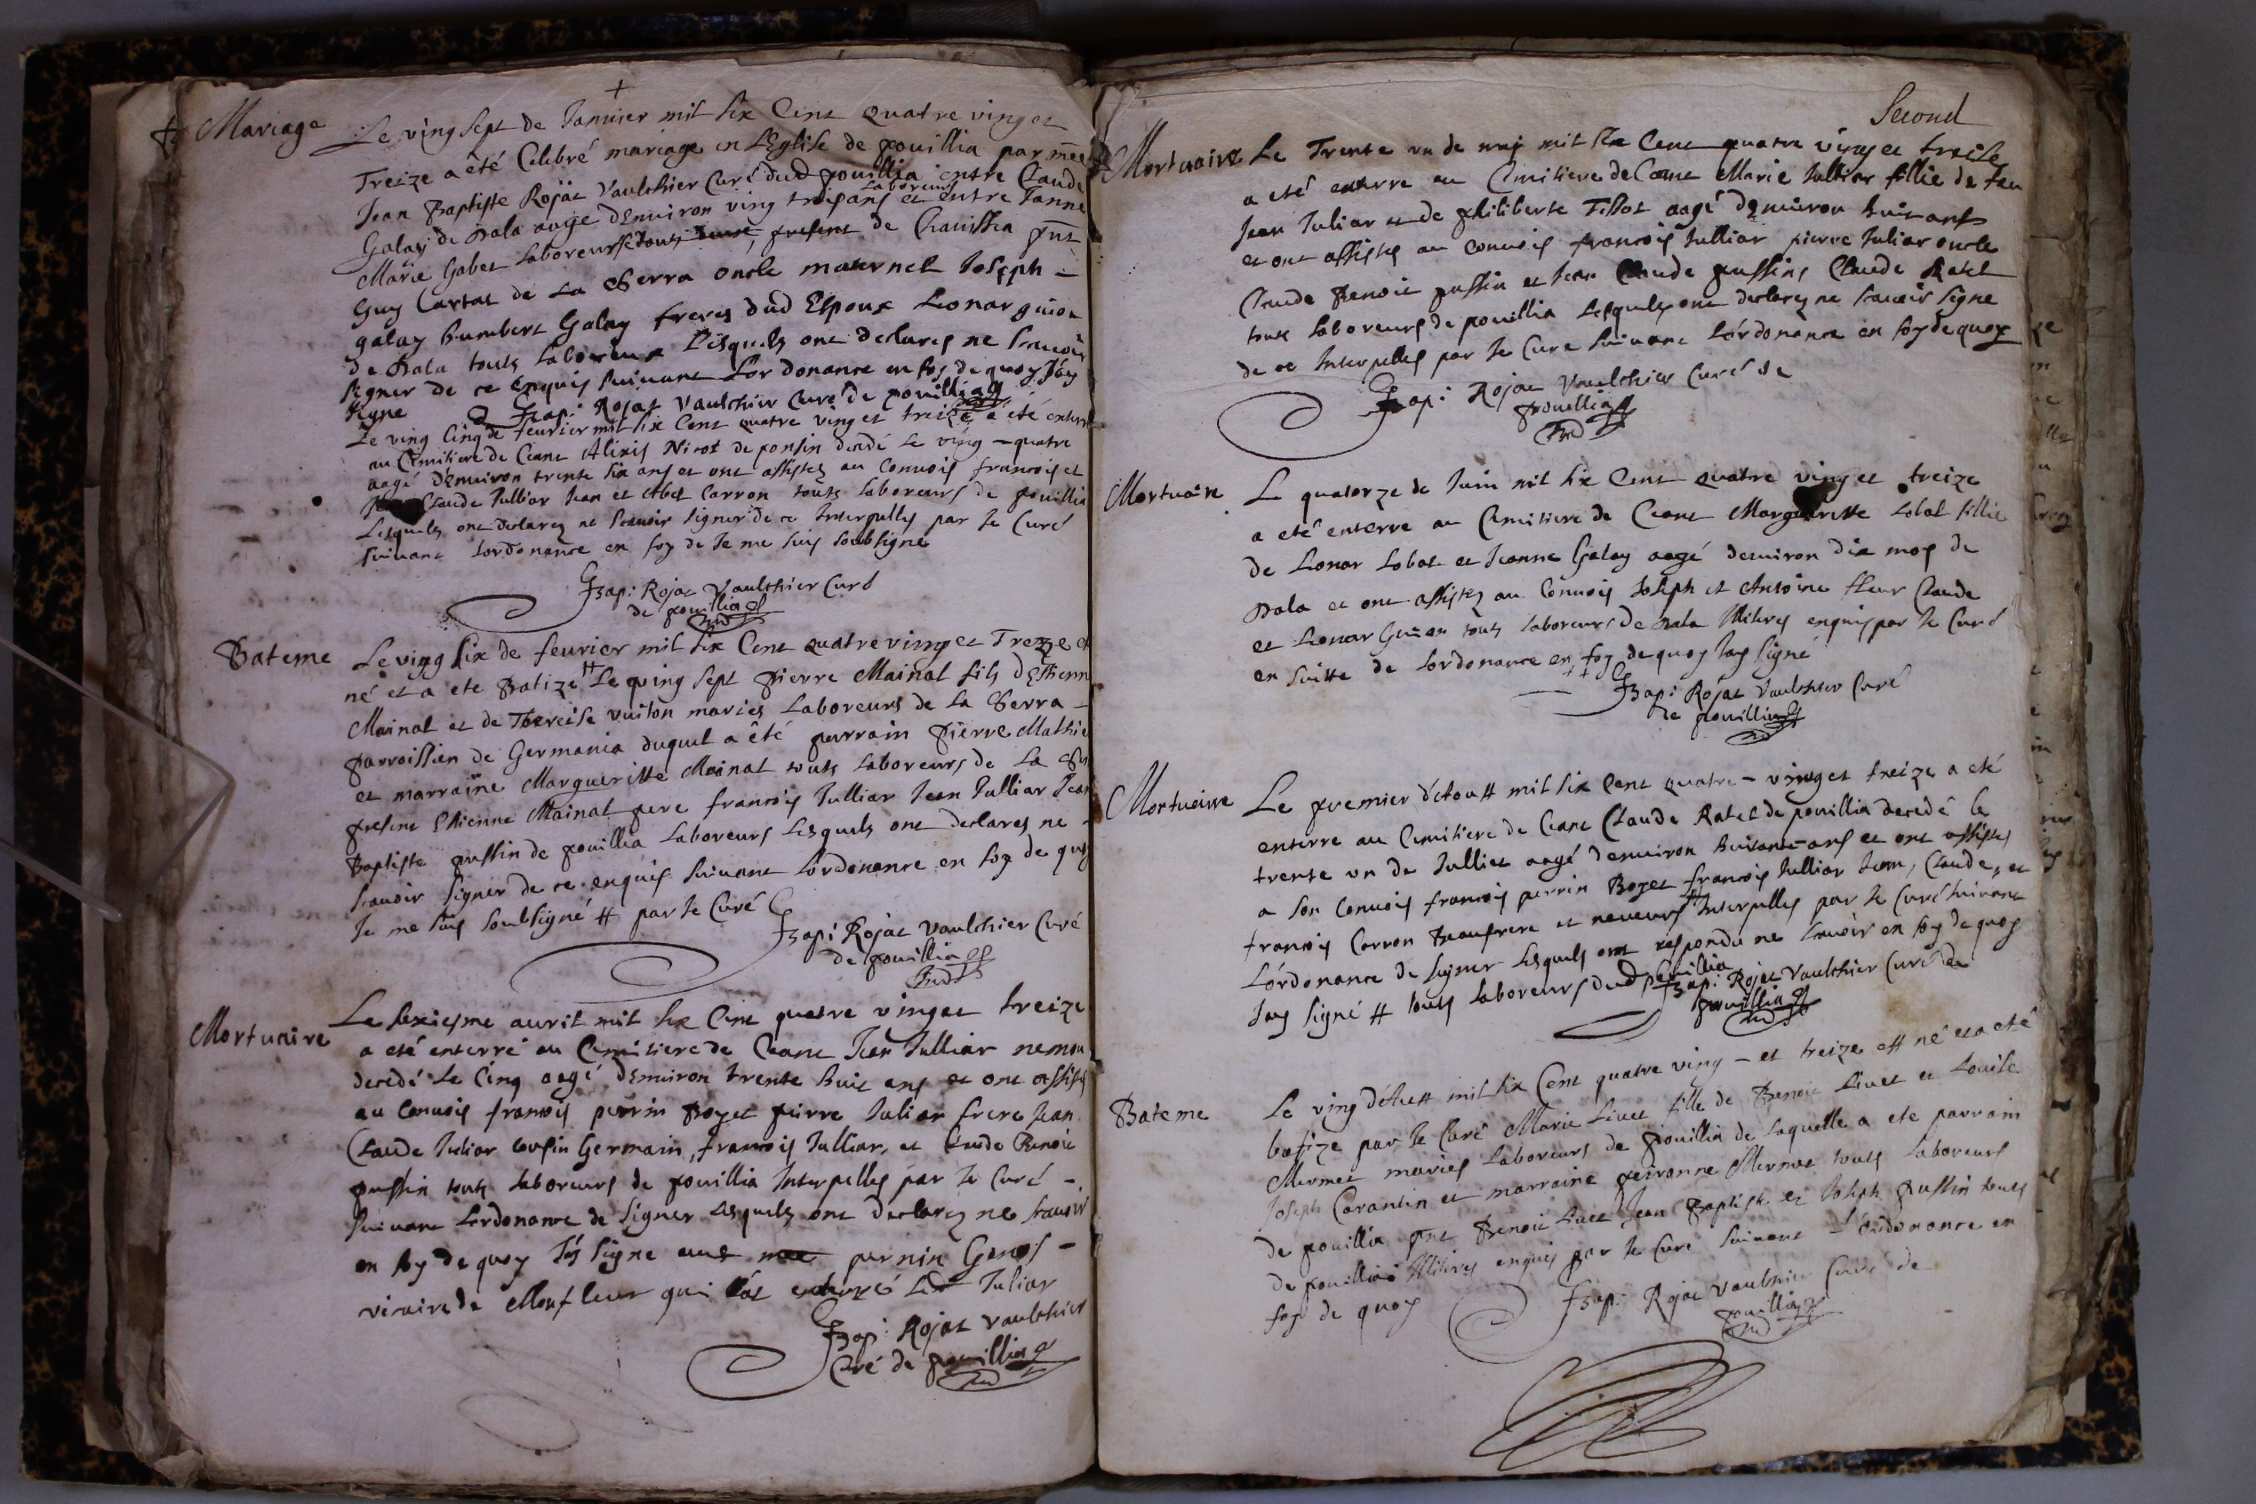 +
Mariage
Le ving sept de Janvier mil six Cent quatre ving et
Treize a êté Celebré mariage en L'Eglise de pouillia par me
Jean Baptiste Rojat Vaulchier Curé dud pouillia entre Claude
Laboreurs
Galay de Dala aagé d'Environ ving trois ans et entre Janne
Marie Gabet Laboreurse touts present de Chavissia pnt
Guy Cartat de La Serra oncle maternel Joseph -
galay humbert Galay freres dud Espoux Leonar guion
de Dala touts Laboreurs Lesquels ont declares ne scavoir
signer de ce enquis suivant Lordonance en foy de quoy J'ay
signe
Bap: Rojat Vaulchier Curé de pouillia
Le ving Cinq de fevrier mil six Cent quatre ving et treize a été enterré
au Cemitiere de Ceant Alexis Nicot de ponsin decedé Le ving - quatre
aagé d'Environ trente six ans et ont assistes au Convois francois et
Claude Julliar Jean et Abel Carron touts Laboreurs de pouillia
Lesquels ont declarez ne scavoir signer de ce Interpelles par Je Curé
suivant Lordonance en foy de Je me suis soubsigne
Bap: Rojat Vaulchier Curé
de pouillia
Bateme
Le ving six de fevrier mil six Cent quatre ving et Treize est
né et a ete Batize # Le ving sept pierre Mainal fils d'Estienne
Mainal et de Thereise vuiton maries Laboreurs de La Serra -
parroissien de Germania duquel a êté parrain pierre Mathie
et marraine Margueritte Mainal touts Laboreurs de La
present Estienne Mainal pere francois Julliar Jean Julliar Jean
Baptiste pussin de pouillia Laboreurs Lesquels ont declares ne -
scavoir signer de ce enquis suivant Lordonance en foy de quoy
Je me suis soubsigné # par Je Curé
Bap: Rojat Vaulchier Curé
de pouillia
Mortuaire
Le sexiesme avril mil six Cent quatre vinget treize
a eté enterré au Cemitiere de Ceant Jean Julliar
decedé Le Cinq aagé d'Environ trente huit ans et ont assistes
au Convois francois perrin Boyet pierre Juliar frere Jean
Claude Juliar Cousin Germain, francois Julliar, et Claude Benoit
pussin touts Laboreurs de pouillia Interpelles par Je Curé -
suivant Lordonance de signer Lesquels ont declarez ne scavoir
en foy de quoy J'ay signe avec pernin Genos -
vicaire de Monsieur qui l'at enterré Led Juliar
Bap: Rojat Vaulchier
Curé de pouillia
Second
Mortuaire
Le Trente un de may mil six Cent quatre ving et treize
a eté enterre au Cemitiere de Ceant Marie Julliar fillie de feu
Jean Juliar et de philiberte Tissot aagé d'Environ huit ans
et ont assistes au convois francois Julliar pierre Juliar oncle
Claude Benoit pussin et Jean Claude pussins Claude Ratel
touts Laboreurs de pouillia Lesquels ont declarez ne scavoir signe
de ce Interpelles par Je Cure suivant Lordonance en foy de quoy
Bap: Rojat Vaulchier Curé de
pouillia
Mortuaire
Le quatorze de Juin mil six Cent quatre ving et treize
a eté enterre au Cemitiere de Ceant Margueritte Lobat fillie
de Leonar Lobat et Jeanne Galay aagé denviron dix moy de
Dala et ont assistez au Convois Joseph et Antoine fleur Claude
et Leonar Guion touts Laboreurs de Dala Illitires enquis par Je Curé
en suitte de Lordonance en foy de quoy Jay signé
Bap: Rojat Vaulchier Curé
de pouillia
Mortuaire
Le premier d'Aoust mil six Cent quatre - ving et treize a eté
enterre au Cemitiere de Ceant Claude Ratel de pouillia decedé le
trente un de Julliet aagé d'environ huitante ans et ont assistes
a son Convois francois perrin Boyet francois Julliar Jean, Claude, et
francois Carron Beaufrere et neveurs # Interpelles par Je Curé suivant
Lordonance de signer Lesquels ont respondu ne scavoir en foy de quoy
Jay signé # touts Laboreurs dud pouillia
Bap: Rojat Vaulchier Curé de
pouillia
Bateme
Le ving d'Aoust mil six Cent quatre ving - et treize est né et a eté
batize par Je Curé Marie Livet fille de Benoit Livet et Louise
Mermet maries Laboreurs de pouillia de Laquelle a ete parrain
Joseph Carantin et marraine peironne Mermet touts Laboreurs
de pouillia pnt Benoit Livet Jean Baptiste et Joseph pussin touts
de pouillia Illitires enquis par Je Curé suivant L'ordonance en
foy de quoy
Bap: Rojat Vaulchier Curé de
pouillia